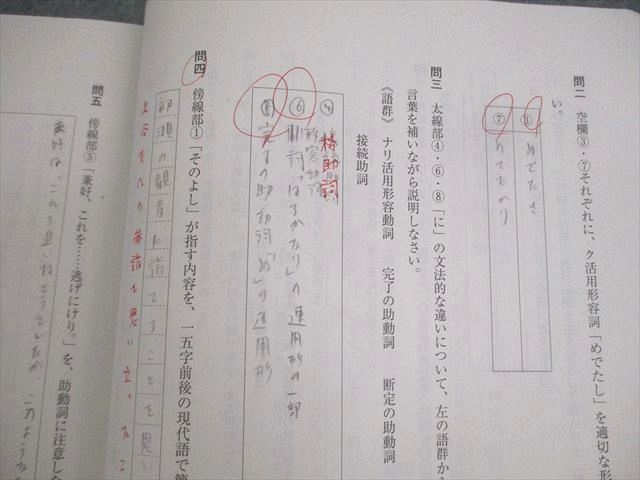 問二　空欄③・⑦それぞれに、ク活用形容詞「めでたし」を適切な形
い。
③　めでたき
⑦　めでたかり
問三　太線部④・⑥・⑧「に」の文法的な違いについて、左の語群か
言葉を補いながら説明しなさい。
《語群》　ナリ活用形容動詞　完了の助動詞　断定の助動詞
接続助詞
④　格助詞
⑥　「はるかなり」の連用形の一部
⑧　完了の助動詞「ぬ」の連用形
問四　傍線部①「そのよし」が指す内容を、一五字前後の現代語で簡
の観音に詣でることを思い
問五　傍線部⑤「兼好、これを……逃げにけり。」を、助動詞に注意し
兼好は、これを追いはらおうとしたが、このような